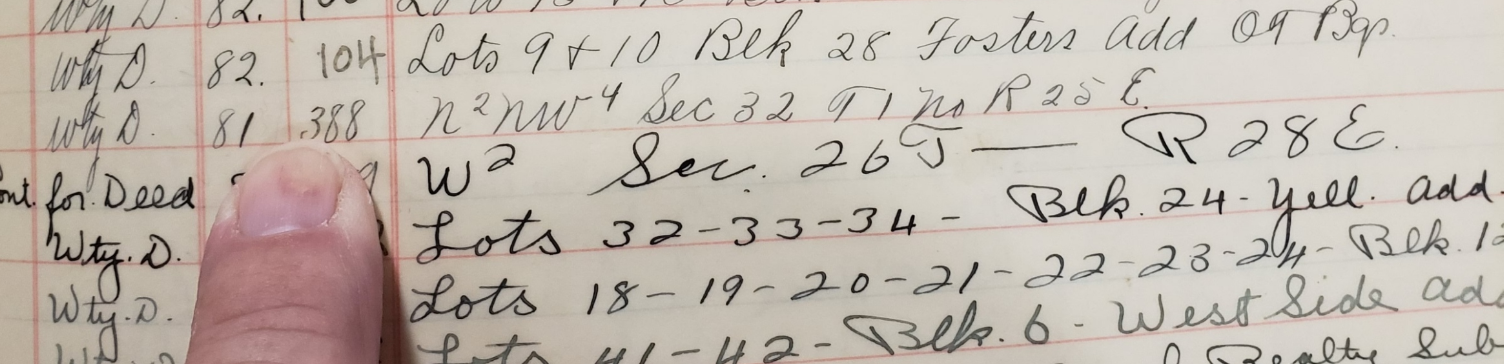 Wty D. 82.
Wty D. 82. 104 Lots 9 + 10 Blk 28 Fosters Add OT Bgs.
Wty D. 81 388 N²NW⁴ Sec 32 T1 no R 25 E.
ont. for Deed 9 W² Sec. 26 T — R 28 E.
Wty. D. Lots 32-33-34- Blk. 24- Yell. Add.
Wty. D. Lots 18-19-20-21-22-23-24- Blk. 12
Wt Lots 41-42- Blk. 6 - West Side Add
Realty Sub